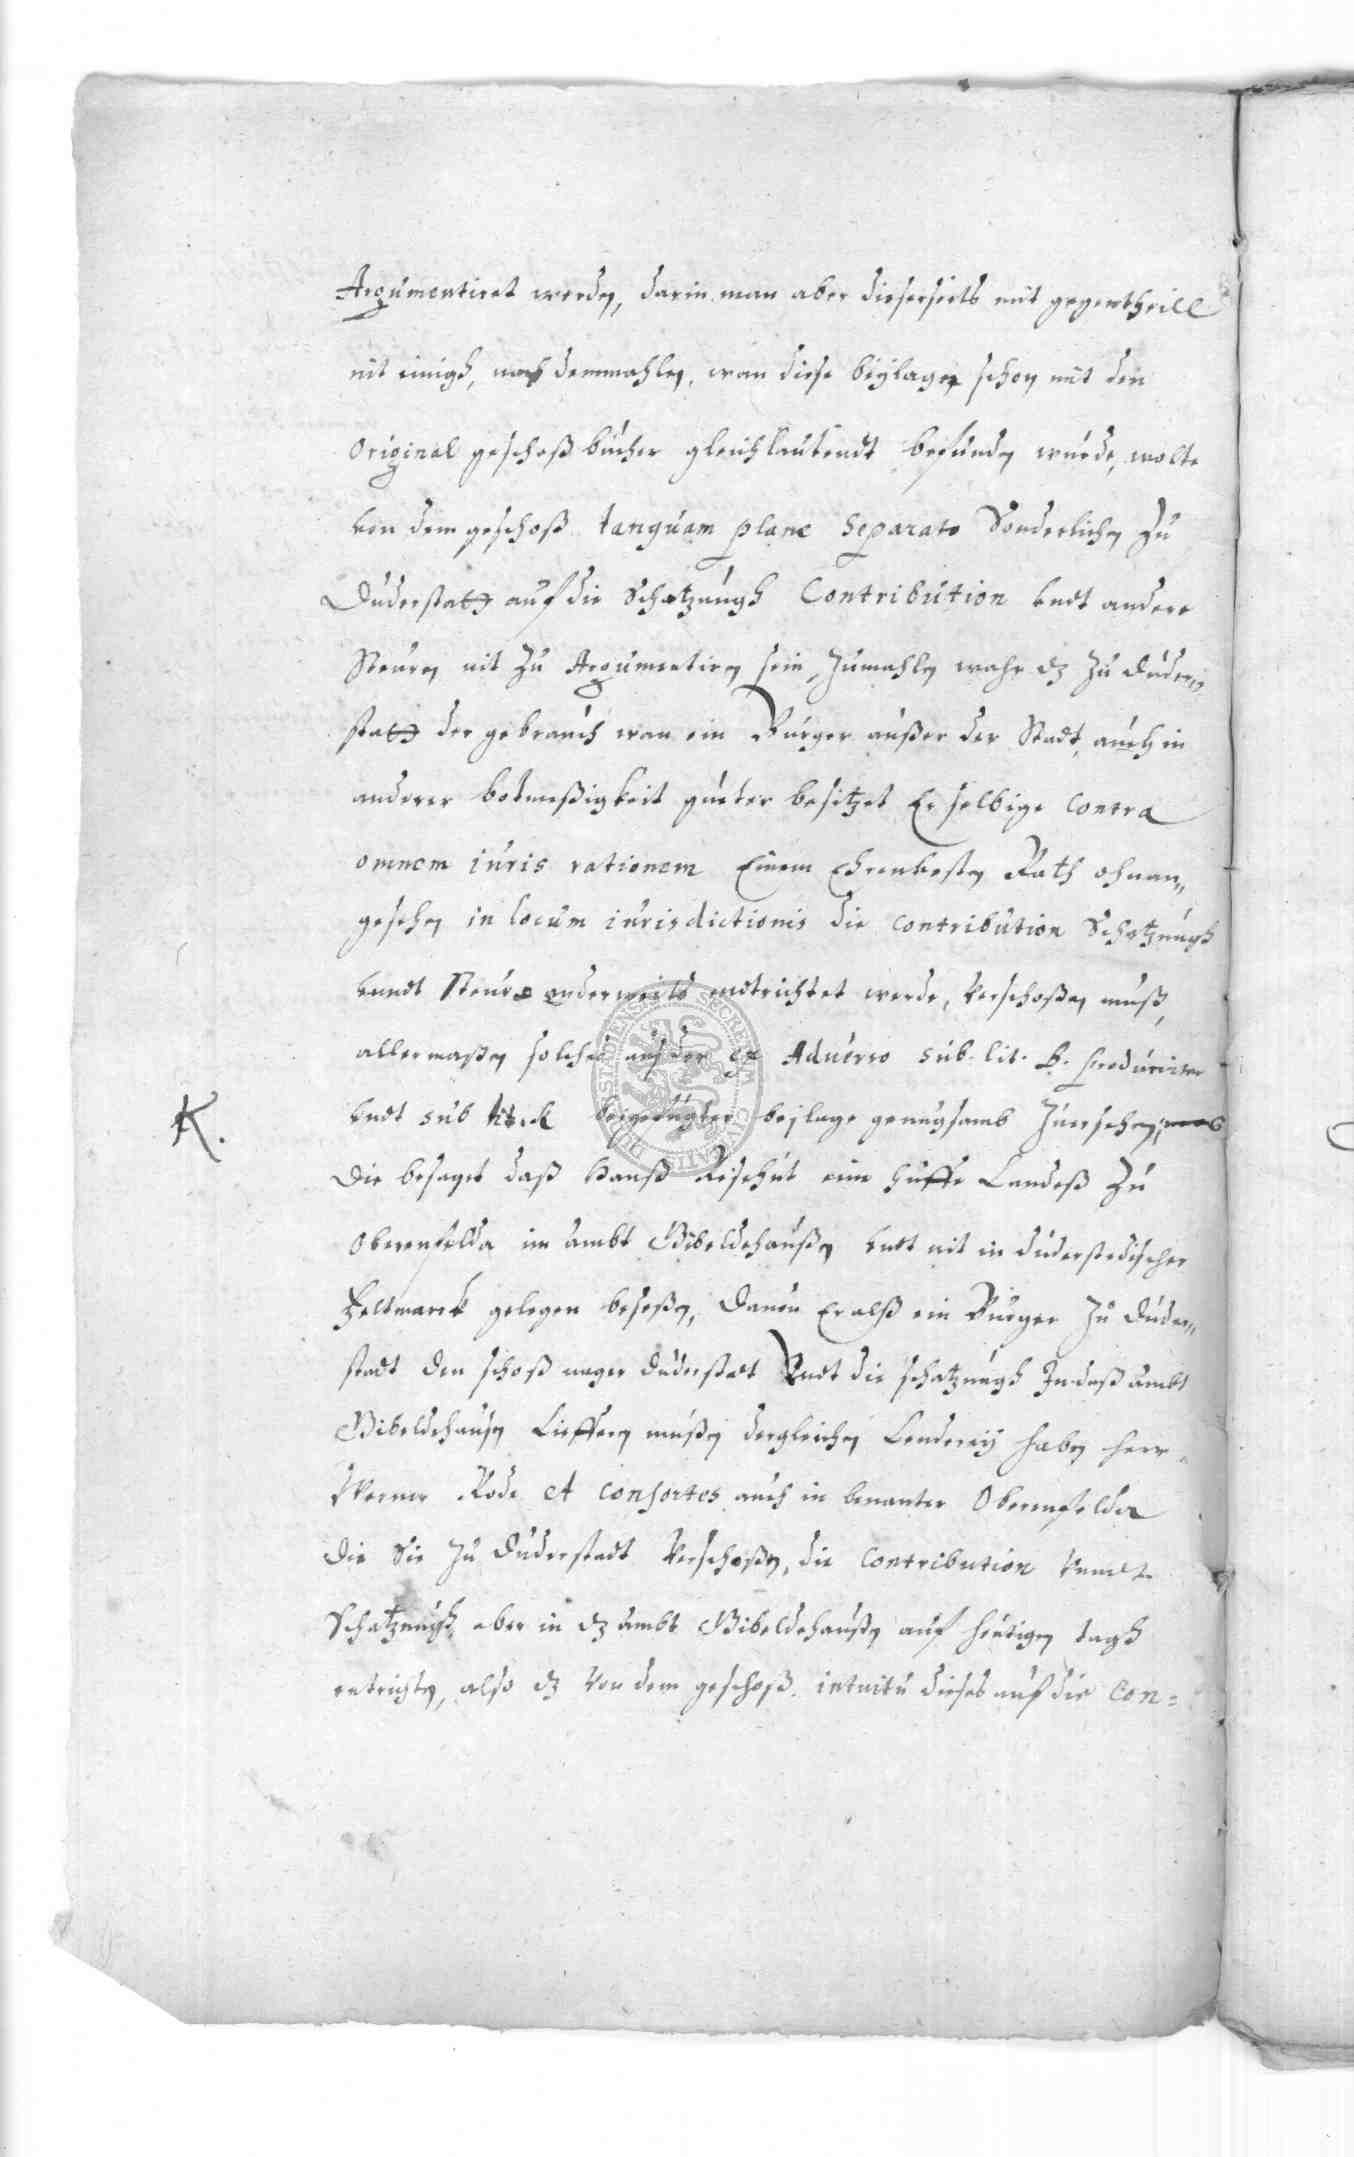 Argumentiret werden, darin man aber dieserseits mit gegentheill
nit einigh, nach demmahlen, wan diese beylagen schon mit den
Original geschoß bücher gleichlautendt befunden würde, wolte
von dem geschoß tanquam plane separato Sonderlichen zu
Duderstatt auf die Schatzungh Contribution vndt andere
Steuren nit zu Argumentiren sein, zumahlen wahr dz zu Duder-
statt der gebrauch wan ein Bürger außer der Stadt, auch in
anderer botmeßigkeit güeter besitzet Er selbige contra
omnem iuris rationem Einem Ehrenvesten Rath ohnan-
gesehen in locum iurisdictionis die contribution Schatzungh
vnndt Steure anderweits endtrichtet werde, verschoßen muß,
allermaßen solches auß der ex Adverso sub. lit. B. producirter
K.
vndt sub lit. K beigefügter beylage genugsamb zuersehen,
Die besaget daß Hanß eine huffe Landeß zu
Oberenfelda im ambt Gibeldehaußen vndt nit in duderstedischer
Feldmarck gelegen beseßen, Davon Er alß ein Bürger zu Duder-
stadt den schoß nager Duderstadt Vndt die schatzungh In daß ambt
Gibeldehausen Lieffern müßen dergleichen Lenderey haben herr
Werner Rode et consortes auch in benanter Oberenfelda
die Sie zu Duderstadt verschoßen, die contribution vnndt
Schatzungh aber in dz ambt Gibeldehaußen auf heutigen tagh
entrichten, also dz von dem geschoß intuitu dieses auf die con=